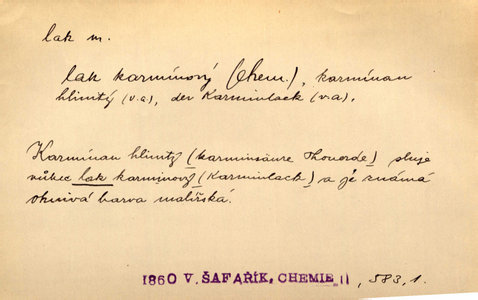 lak m.
lak karmínový (Chem.), karmínan
hlinitý (v.a), der Karminlack (v.a),
Karmínan hlinitý (karminsäure Thonerde) sluje
vůbec lak karmínový (Karminlack) a je známá
ohnivá barva malířská.
1860 V. ŠAFAŘÍK, CHEMIE II, 583,1.